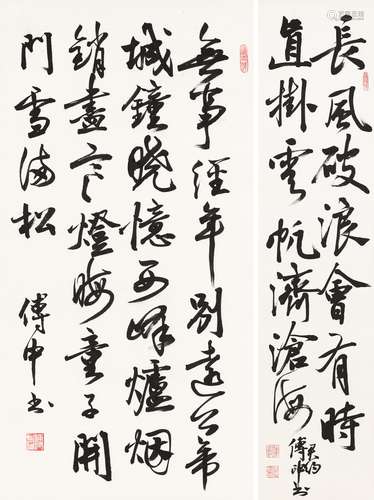 長風破浪會有時
直掛雲帆濟滄海
傅申書
無事經年別遠公帝
城鐘曉憶西峰爐烟
銷盡寒燈晦童子開
門雪滿松
傅申書